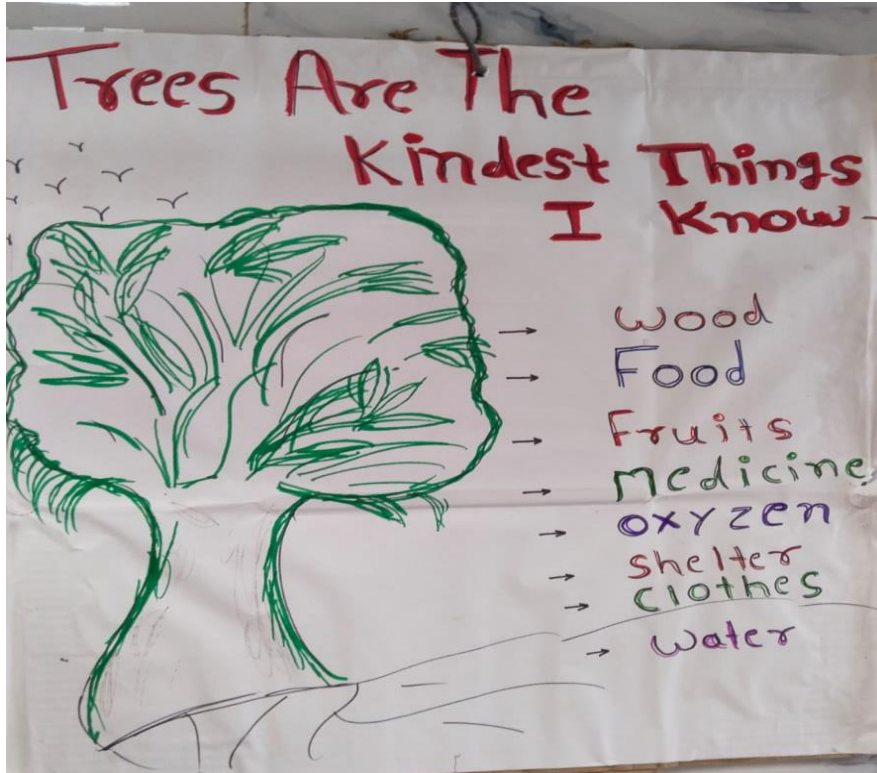 Trees Are The
Kindest Things
I Know
wood
Food
Fruits
medicine
oxyzen
shelter
clothes
water